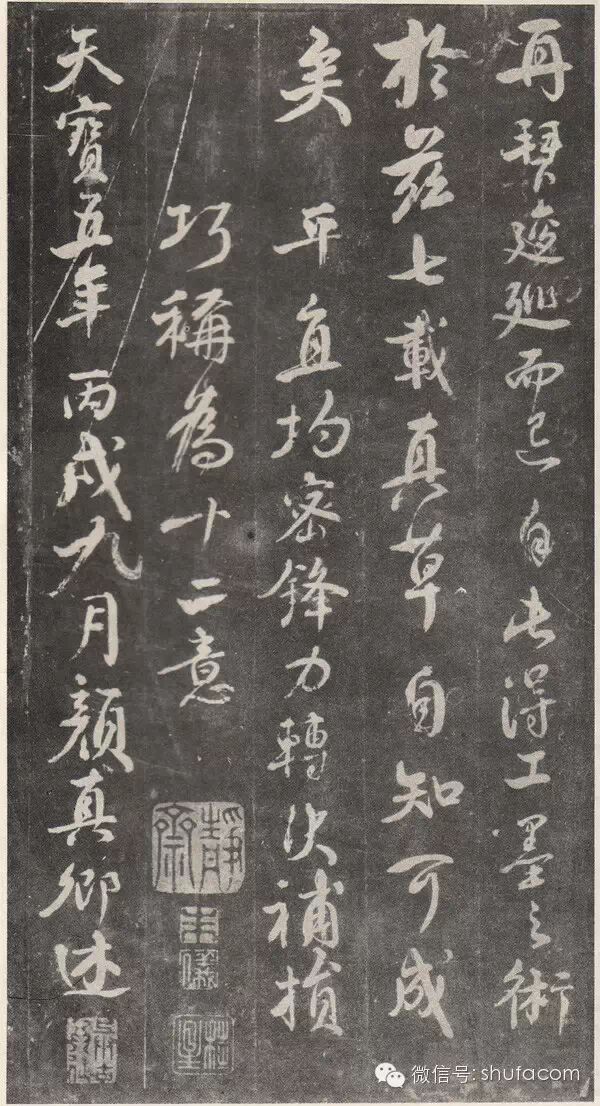 再拜逡巡而已自此得工墨之術
於茲七載真草自知可成
矣 平直均密鋒力轉決補損
巧稱為十二意
天寶五年丙戌九月顏真卿述
靜齋
微信号: shufacom